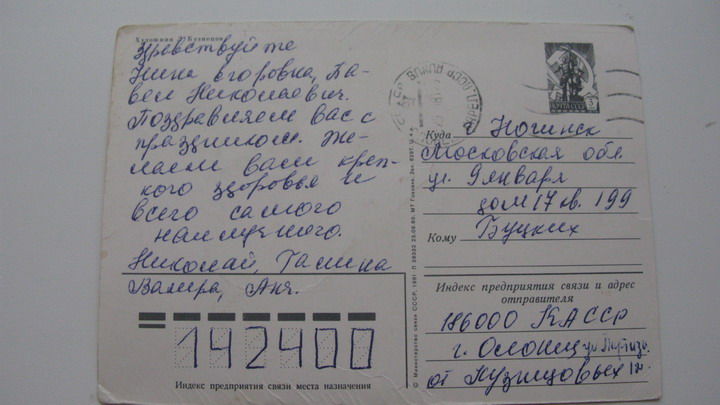 Художник Кузнецов
Здравствуйте
Нина Егоровна, Па-
вел Николаевич.
Поздравляем Вас с
праздником. Же-
лаем вам креп-
кого здоровья и
всего самого
наилучшего.
Николай, Галина
Валера, Аня.
142400
Индекс предприятия связи места назначения
Куда г Ногинск
Московская обл.
ул. 9 января
дом 17 кв. 199
Кому Буцких
Индекс предприятия связи и адрес
отправителя
186000 КАССР
г. Олонец ул
от Кузнецовых
© Министерство связи СССР, 1981